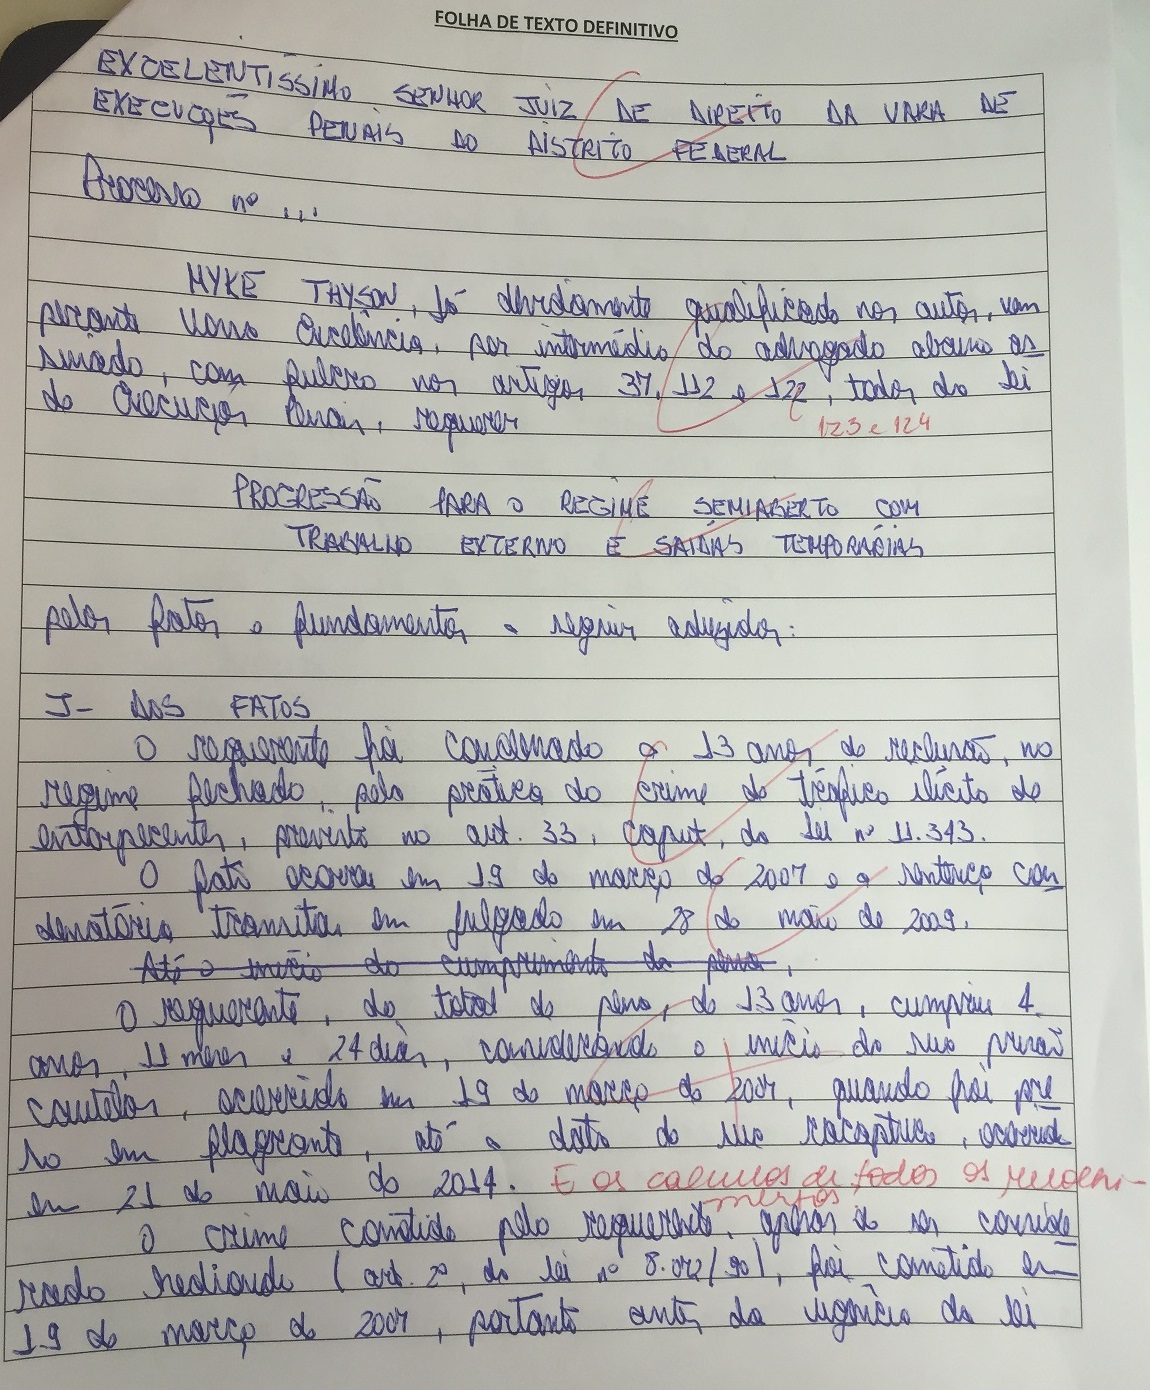 FOLHA DE TEXTO DEFINITIVO
EXCELENTÍSSIMO SENHOR JUIZ DE DIREITO DA VARA DE
EXECUÇÕES PENAIS DO DISTRITO FEDERAL
Processo nº ...
MYKE THYSON, já devidamente qualificado nos autos, vem
perante Vossa Excelência, por intermédio do advogado abaixo as
sinado, com fulcro nos artigos 37, 112 e 122, todos da lei
123 e 124
de Execuções Penais, requerer
PROGRESSÃO PARA O REGIME SEMIABERTO COM
TRABALHO EXTERNO E SAÍDAS TEMPORÁRIAS
pelos fatos e fundamentos a seguir aduzidos:
I- DOS FATOS
O requerente foi condenado a 13 anos de reclusão, no
regime fechado, pela prática do crime de tráfico ilícito de
entorpecentes, previsto no art. 33, caput, da lei nº 11.343.
O fato ocorreu em 19 de março de 2007 e a sentença con
denatória transitou em julgado em 28 de maio de 2009.
Até o início do cumprimento da pena,
O requerente, do total de pena, de 13 anos, cumpriu 4
anos, 11 meses e 24 dias, considerando o início da sua prisão
cautelar, ocorrida em 19 de março de 2007, quando foi pre
so em flagrante, até a data de sua recaptura, ocorrida
em 21 de maio de 2014. E os calculos de todos os redeni-
mentos
O crime cometido pelo requerente, apesar de ser conside
rado hediondo (art. 2º, da lei nº 8.072/90), foi cometido em
19 de março de 2007, portanto antes da vigência da lei